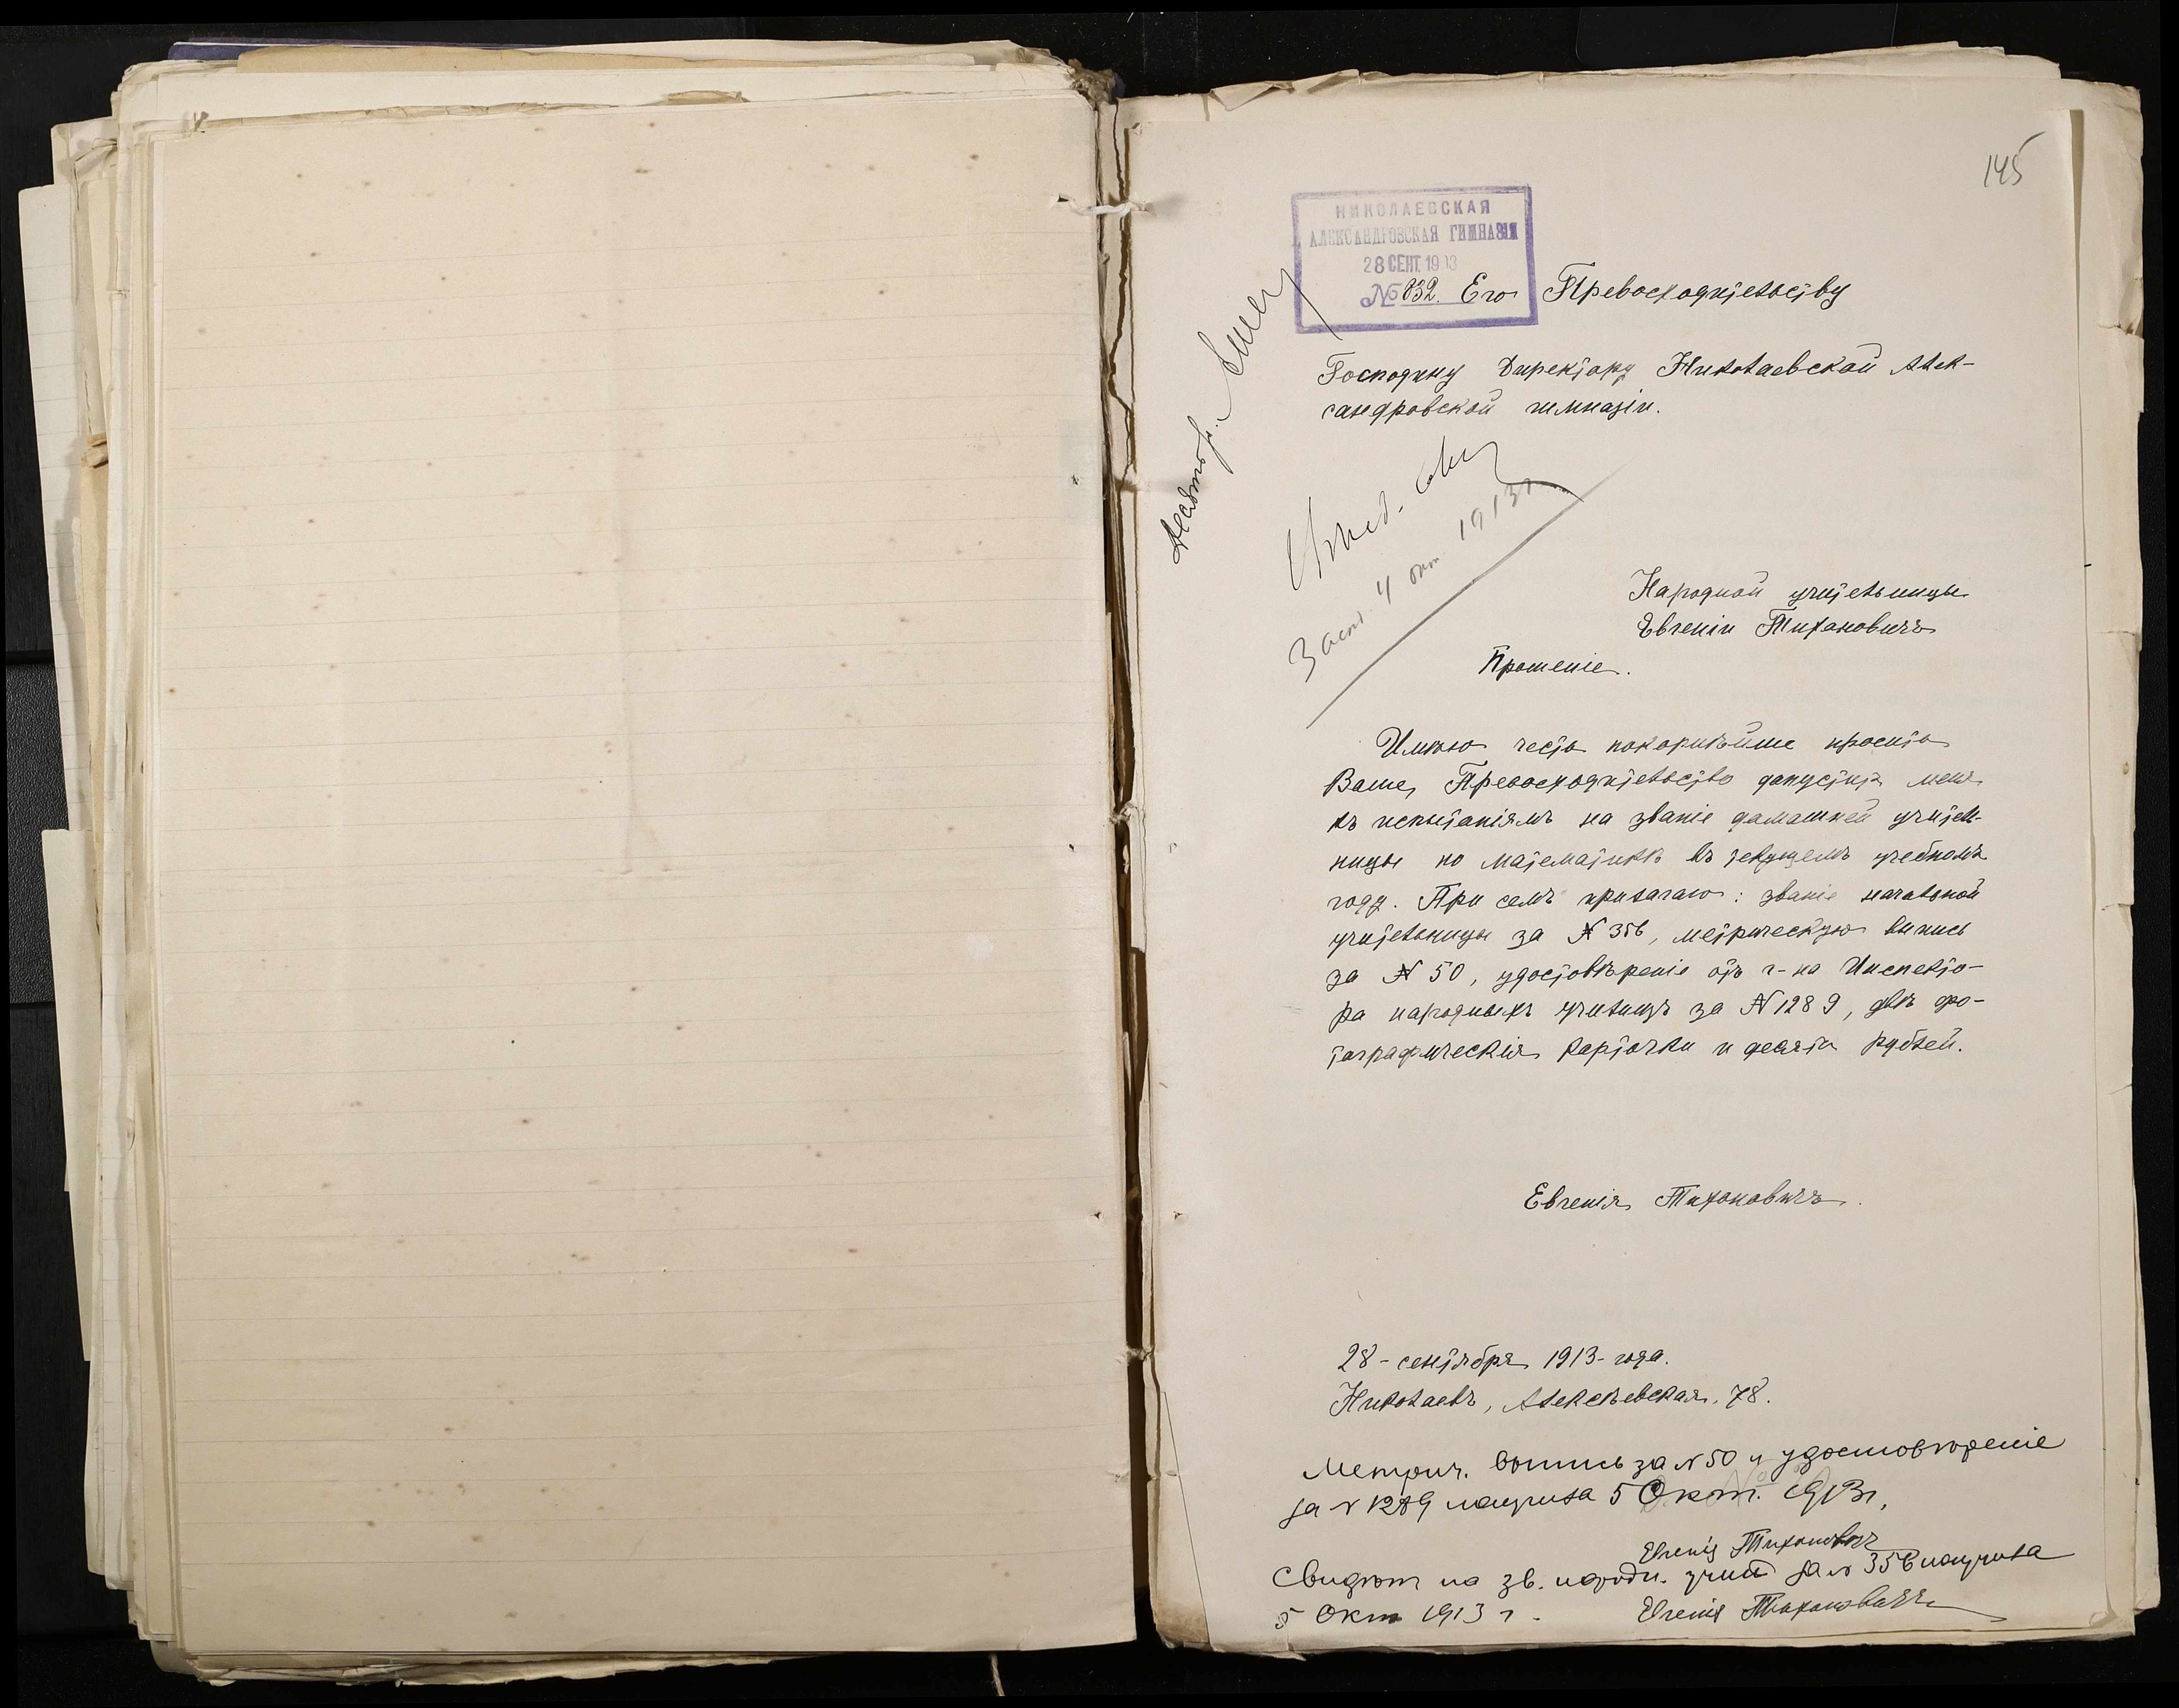 145
НИКОЛАЕВСКАЯ
АЛЕКСАНДРОВСКАЯ ГИМНАЗІЯ
28 СЕНТ. 1913
№ 832. Его Превосходительству
Господину Директору Николаевской Алек-
сандровской гимназіи.
4 окт. 1913 г.
Народной учительницы
Евгеніи Тихановичъ
Прошеніе.
Имѣю честь покорнѣйше просить
Ваше Превосходительство допустить меня
къ испытаніямъ на званіе домашней учитель-
ницы по математикѣ въ текущемъ учебномъ
году. При семъ прилагаю: званіе начальной
учительницы за № 356, метрическую выпись
за № 50, удостовѣреніе отъ г-на Инспекто-
ра народныхъ училищъ за № 1289, двѣ фо-
тографическія карточки и десять рублей.
Евгенія Тихановичъ.
28-сентября 1913-года.
Николаевъ, Алексѣевская, 78.
Метрич. выпись за № 50 и удостовѣреніе
за № 1289 получила 5 Окт. 1913 г.
Евгенія Тихановичъ
Свидѣт на зв. народн. учит за № 356 получила
5 Окт 1913 г.
Евгенія Тихановичъ